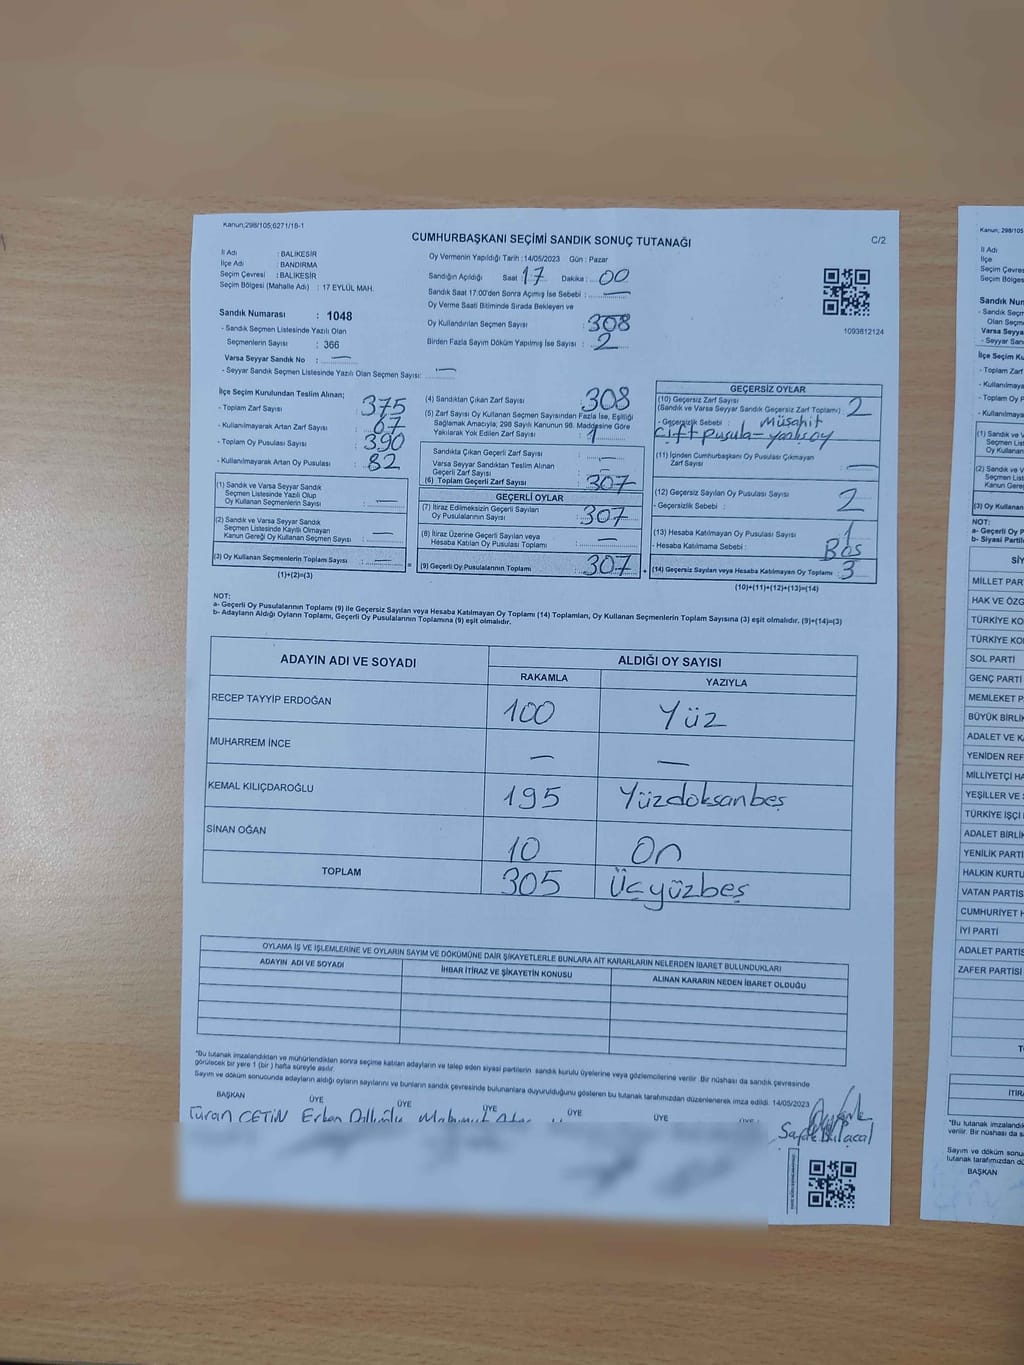 Kanun;298/105;6271/18-1
CUMHURBAŞKANI SEÇİMİ SANDIK SONUÇ TUTANAĞI
C/2
İl Adı : BALIKESİR
İlçe Adı : BANDIRMA
Seçim Çevresi : BALIKESİR
Seçim Bölgesi (Mahalle Adı) : 17 EYLÜL MAH.
Sandık Numarası : 1048
- Sandık Seçmen Listesinde Yazılı Olan
Seçmenlerin Sayısı : 366
Varsa Seyyar Sandık No : —
- Seyyar Sandık Seçmen Listesinde Yazılı Olan Seçmen Sayısı: —
Oy Vermenin Yapıldığı Tarih :14/05/2023 Gün : Pazar
Sandığın Açıldığı Saat :17 Dakika : 00
Sandık Saat 17:00'den Sonra Açımış İse Sebebi : —
Oy Verme Saati Bitiminde Sırada Bekleyen ve
Oy Kullandırılan Seçmen Sayısı : 308
Birden Fazla Sayım Döküm Yapılmış İse Sayısı : 2
1093812124
İlçe Seçim Kurulundan Teslim Alınan;
- Toplam Zarf Sayısı 375
- Kullanılmayarak Artan Zarf Sayısı 67
- Toplam Oy Pusulası Sayısı 390
- Kullanılmayarak Artan Oy Pusulası 82
(1) Sandık ve Varsa Seyyar Sandık
Seçmen Listesinde Yazılı Olup
Oy Kullanan Seçmenlerin Sayısı : —
(2) Sandık ve Varsa Seyyar Sandık
Seçmen Listesinde Kayıtlı Olmayan
Kanun Gereği Oy Kullanan Seçmen Sayısı : —
(3) Oy Kullanan Seçmenlerin Toplam Sayısı : —
(1)+(2)=(3)
(4) Sandıktan Çıkan Zarf Sayısı : 308
(5) Zarf Sayısı Oy Kullanan Seçmen Sayısından Fazla İse, Eşitliği
Sağlamak Amacıyla, 298 Sayılı Kanunun 98. Maddesine Göre
Yakılarak Yok Edilen Zarf Sayısı : 1
Sandıkta Çıkan Geçerli Zarf Sayısı : —
Varsa Seyyar Sandıktan Teslim Alınan
Geçerli Zarf Sayısı : —
(6) Toplam Geçerli Zarf Sayısı : 307
GEÇERLİ OYLAR
(7) İtiraz Edilmeksizin Geçerli Sayılan
Oy Pusulalarının Sayısı : 307
(8) İtiraz Üzerine Geçerli Sayılan veya
Hesaba Katılan Oy Pusulası Toplamı : —
(9) Geçerli Oy Pusulalarının Toplamı : 307
GEÇERSİZ OYLAR
(10) Geçersiz Zarf Sayısı
(Sandık ve Varsa Seyyar Sandık Geçersiz Zarf Toplamı) : 2
- Geçersizlik Sebebi : Müşahit
Çift pusula - yanlış oy
(11) İçinden Cumhurbaşkanı Oy Pusulası Çıkmayan
Zarf Sayısı : —
(12) Geçersiz Sayılan Oy Pusulası Sayısı : 2
- Geçersizlik Sebebi :
(13) Hesaba Katılmayan Oy Pusulası Sayısı : 1
- Hesaba Katılmama Sebebi : Boş
(14) Geçersiz Sayılan veya Hesaba Katılmayan Oy Toplamı : 3
(10)+(11)+(12)+(13)=(14)
NOT:
a- Geçerli Oy Pusulalarının Toplamı (9) ile Geçersiz Sayılan veya Hesaba Katılmayan Oy Toplamı (14) Toplamları, Oy Kullanan Seçmenlerin Toplam Sayısına (3) eşit olmalıdır. (9)+(14)=(3)
b- Adayların Aldığı Oyların Toplamı, Geçerli Oy Pusulalarının Toplamına (9) eşit olmalıdır.
ADAYIN ADI VE SOYADI ALDIĞI OY SAYISI
RAKAMLA YAZIYLA
RECEP TAYYİP ERDOĞAN 100 Yüz
MUHARREM İNCE — —
KEMAL KILIÇDAROĞLU 195 Yüzdoksanbeş
SİNAN OĞAN 10 On
TOPLAM 305 Üçyüzbeş
OYLAMA İŞ VE İŞLEMLERİNE VE OYLARIN SAYIM VE DÖKÜMÜNE DAİR ŞİKAYETLERLE BUNLARA AİT KARARLARIN NELERDEN İBARET BULUNDUKLARI
ADAYIN ADI VE SOYADI İHBAR İTİRAZ VE ŞİKAYETİN KONUSU ALINAN KARARIN NEDEN İBARET OLDUĞU
*Bu tutanak imzalandıktan ve mühürlendikten sonra seçime katılan adayların ve talep eden siyasi partilerin sandık kurulu üyelerine veya gözlemcilerine verilir. Bir nüshası da sandık çevresinde
görülecek bir yere 1 (bir) hafta süreyle asılır.
Sayım ve döküm sonucunda adayların aldığı oyların sayılarını ve bunların sandık çevresinde bulunanlara duyurulduğunu gösteren bu tutanak tarafımızdan düzenlenerek imza edildi. 14/05/2023
BAŞKAN ÜYE ÜYE ÜYE ÜYE ÜYE
Turan ÇETİN
Kanun; 298/105
İl Adı
İlçe
Seçim Çevresi
Seçim Bölgesi
Sandık Num
- Sandık Seçm
Olan Seçm
Varsa Seyya
- Seyyar Sandık
İlçe Seçim Ku
- Toplam Zarf
- Kullanılmaya
- Toplam Oy P
- Kullanılmaya
(1) Sandık ve V
Seçmen Lis
Oy Kullanan
(2) Sandık ve
Seçmen Lis
Kanun Gere
(3) Oy Kullanan
NOT:
a- Geçerli Oy P
b- Siyasi Partile
SİY
MİLLET PAR
HAK VE ÖZG
TÜRKİYE KO
TÜRKİYE KO
SOL PARTİ
GENÇ PARTİ
MEMLEKET P
BÜYÜK BİRLİ
ADALET VE K
YENİDEN REF
MİLLİYETÇİ HA
YEŞİLLER VE S
TÜRKİYE İŞÇİ
ADALET BİRLİ
YENİLİK PARTİ
HALKIN KURTU
VATAN PARTİS
CUMHURİYET H
İYİ PARTİ
ADALET PARTİS
ZAFER PARTİSİ
İTİRA
*Bu tutanak imzalandı
verilir. Bir nüshası da s
Sayım ve döküm sonu
tutanak tarafımızdan d
BAŞKAN